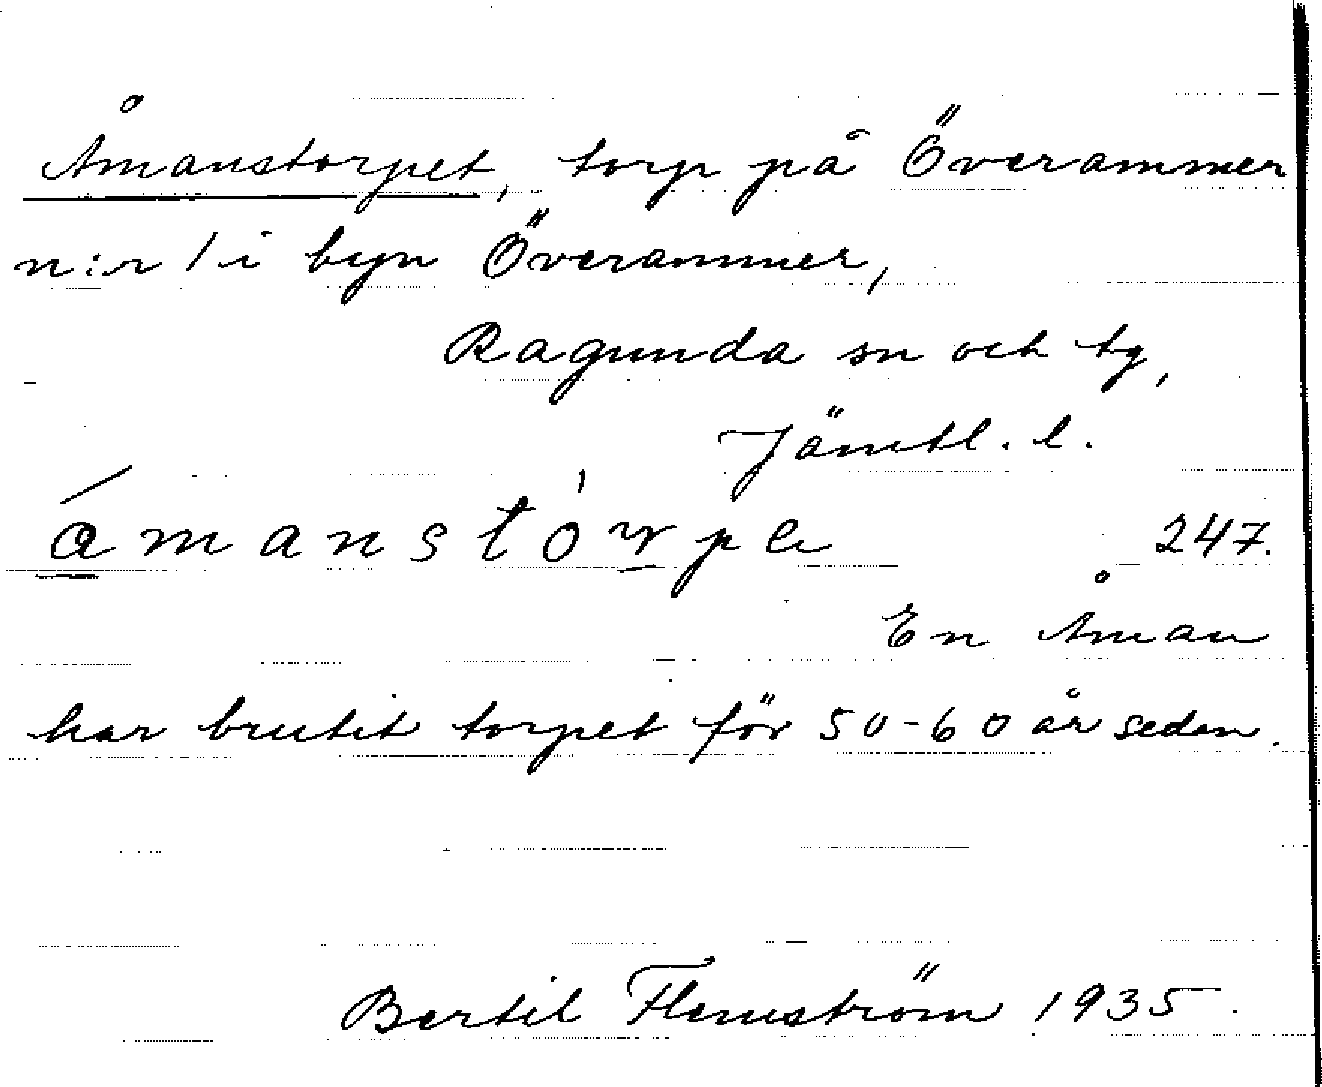 Åmanstorpet, torp på Överammer
n:r 1 i byn Överammer,
Ragunda sn och tg,
Jämtl. l.
247.
En Åman
har brutit torpet för 50-60 år sedan.
Bertil Flemström 1935.